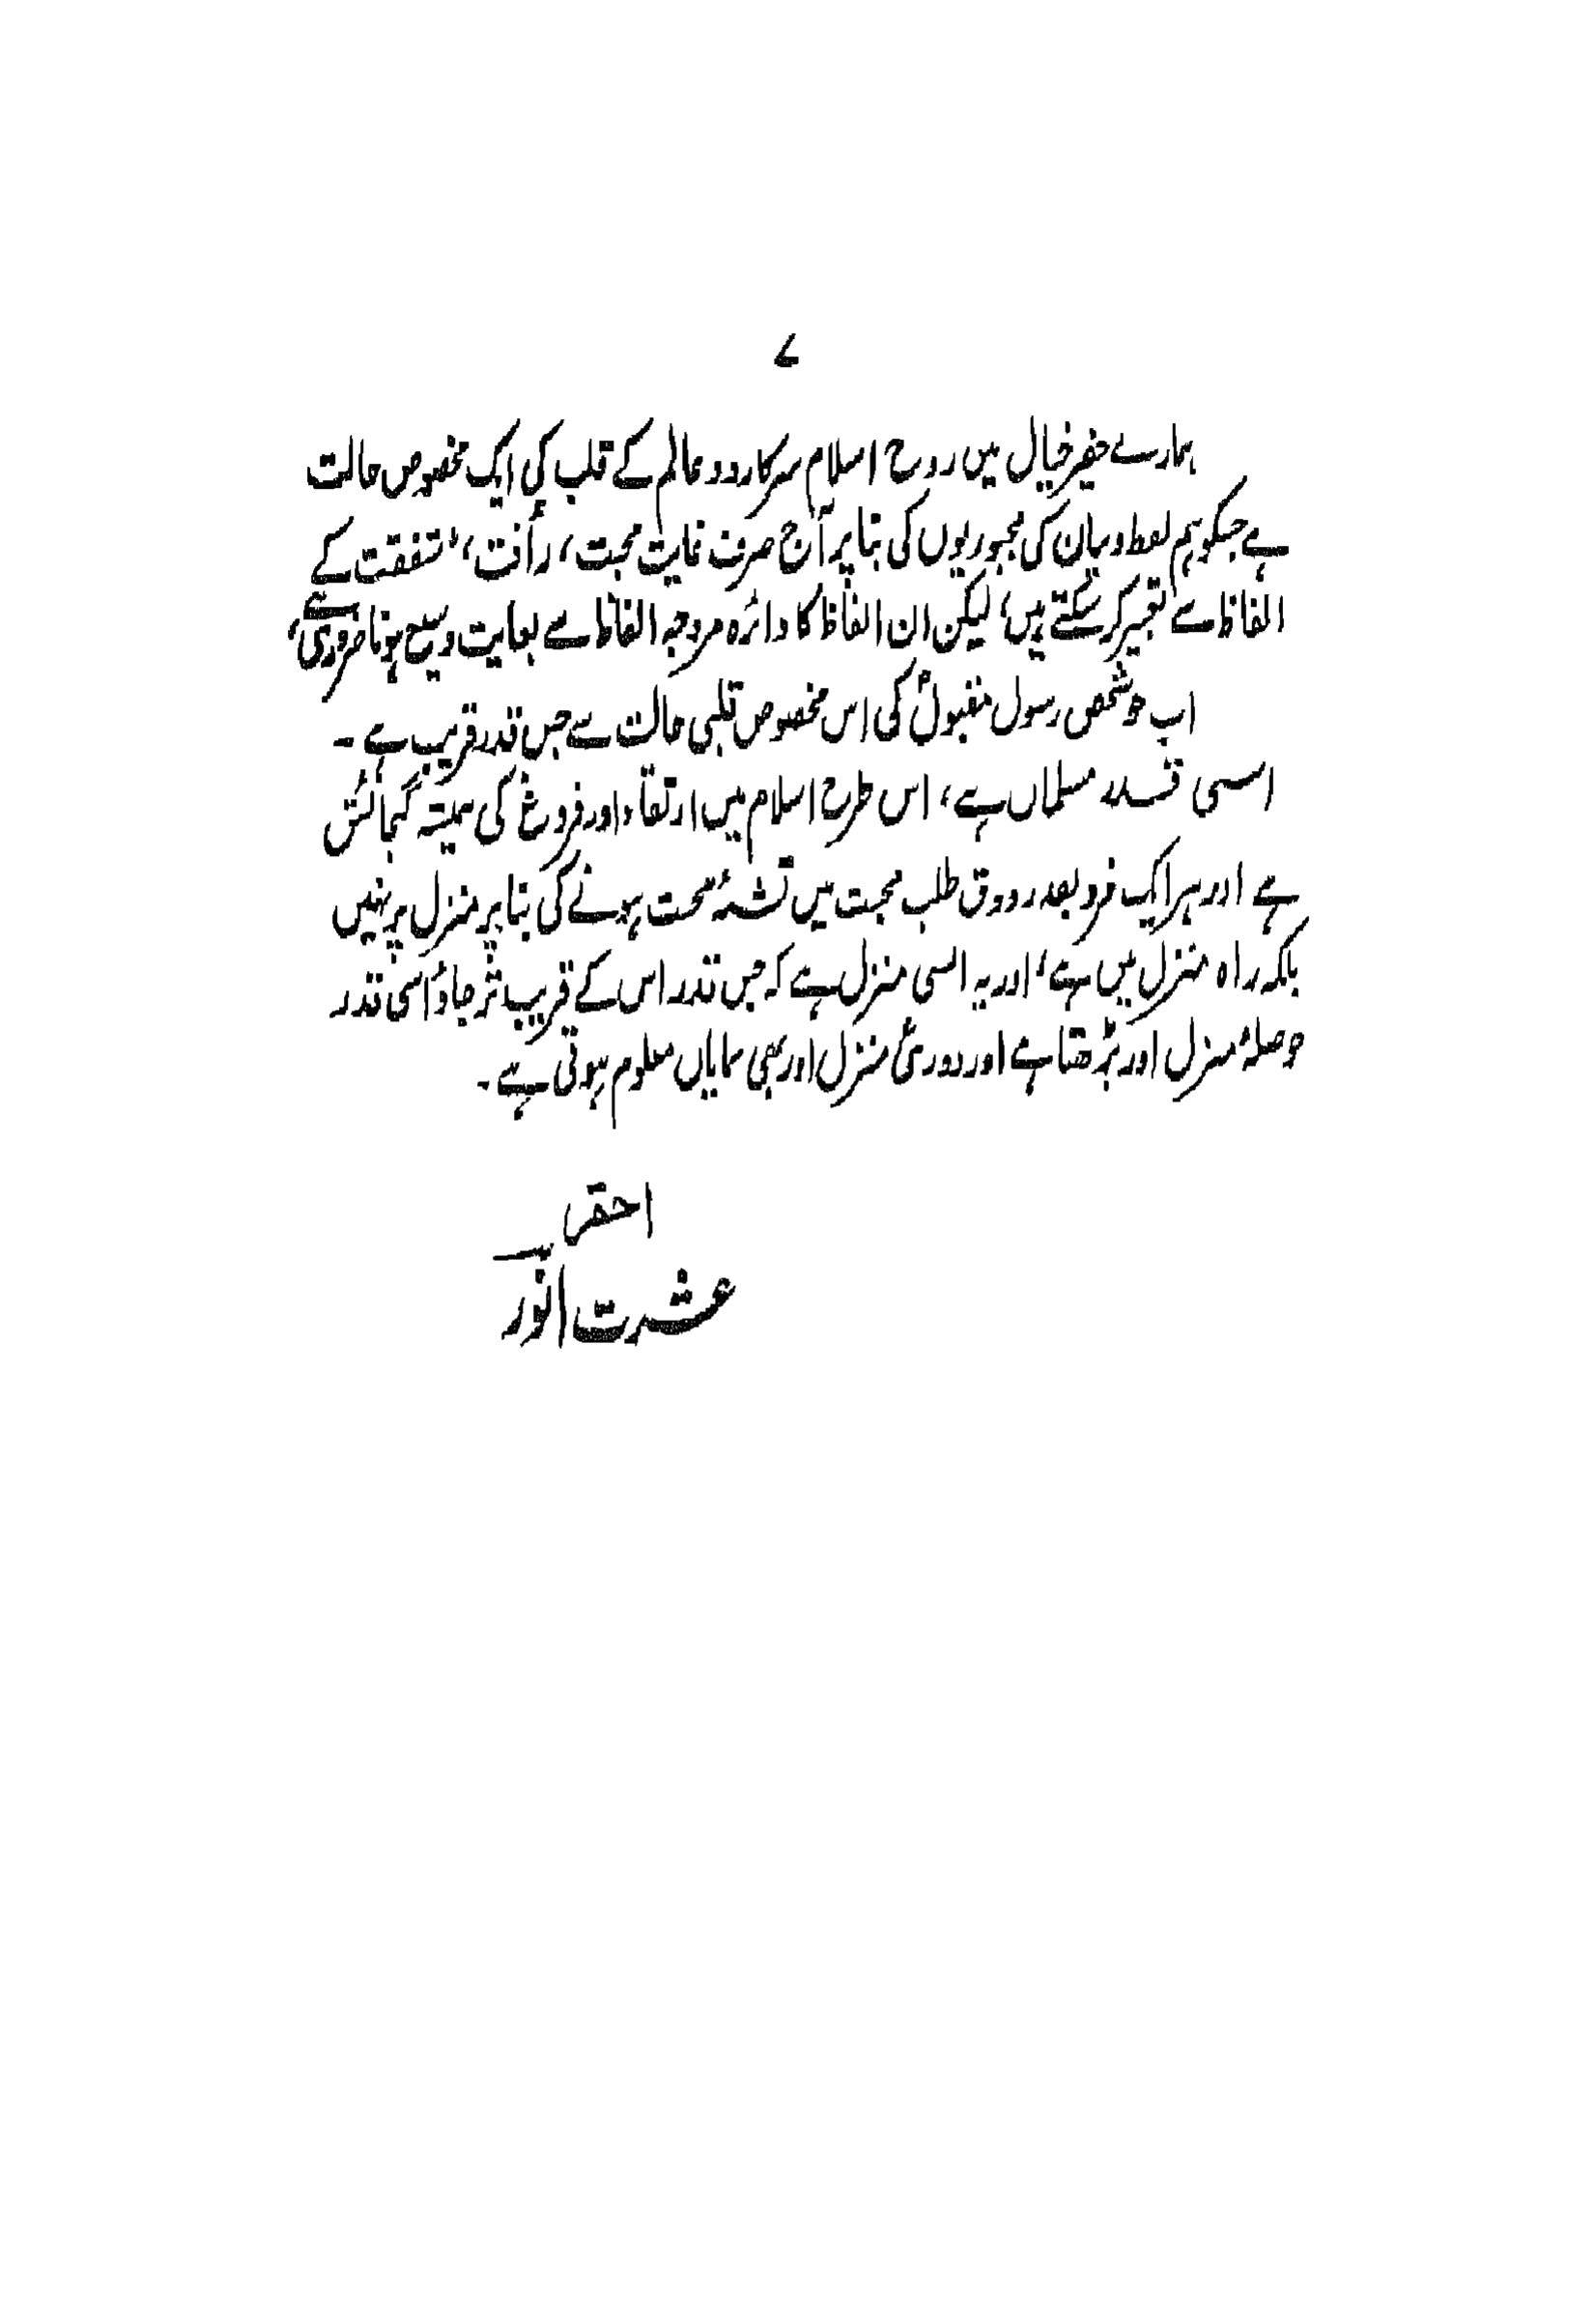 ۷
ہمارے حقیر خیال میں روح اسلام سرکار دو عالم کے قلب کی ایک مخصوص حالت
ہے جسکو ہم لفظ و بیان کی مجبوریوں کی بنا پر آج صرف غایت محبت، رأفت، شفقت کے
الفاظ سے تعبیر کر سکتے ہیں، لیکن ان الفاظ کا دائرہ مروجہ الفاظ سے بغایت وسیع ہونا ضروری ہے،
اب جو شخص رسول مقبولؐ کی اس مخصوص قلبی حالت سے جس قدر قریب ہے ۔
اسی قدر مسلماں ہے، اس طرح اسلام میں ارتقاء اور فروغ کی ہمیشہ گنجائش
ہے اور ہر ایک فرد بقدر ذوق طلب محبت میں تشنۂ محبت ہونے کی بنا پر منزل پر نہیں
بلکہ راہ منزل میں ہے، اور یہ ایسی منزل ہے کہ جس قدر اس کے قریب تر جاؤ اسی قدر
حوصلۂ منزل اور بڑھتا ہے اور دوریٔ منزل اور بھی نمایاں معلوم ہوتی ہے ۔
احقر
عشرت انور